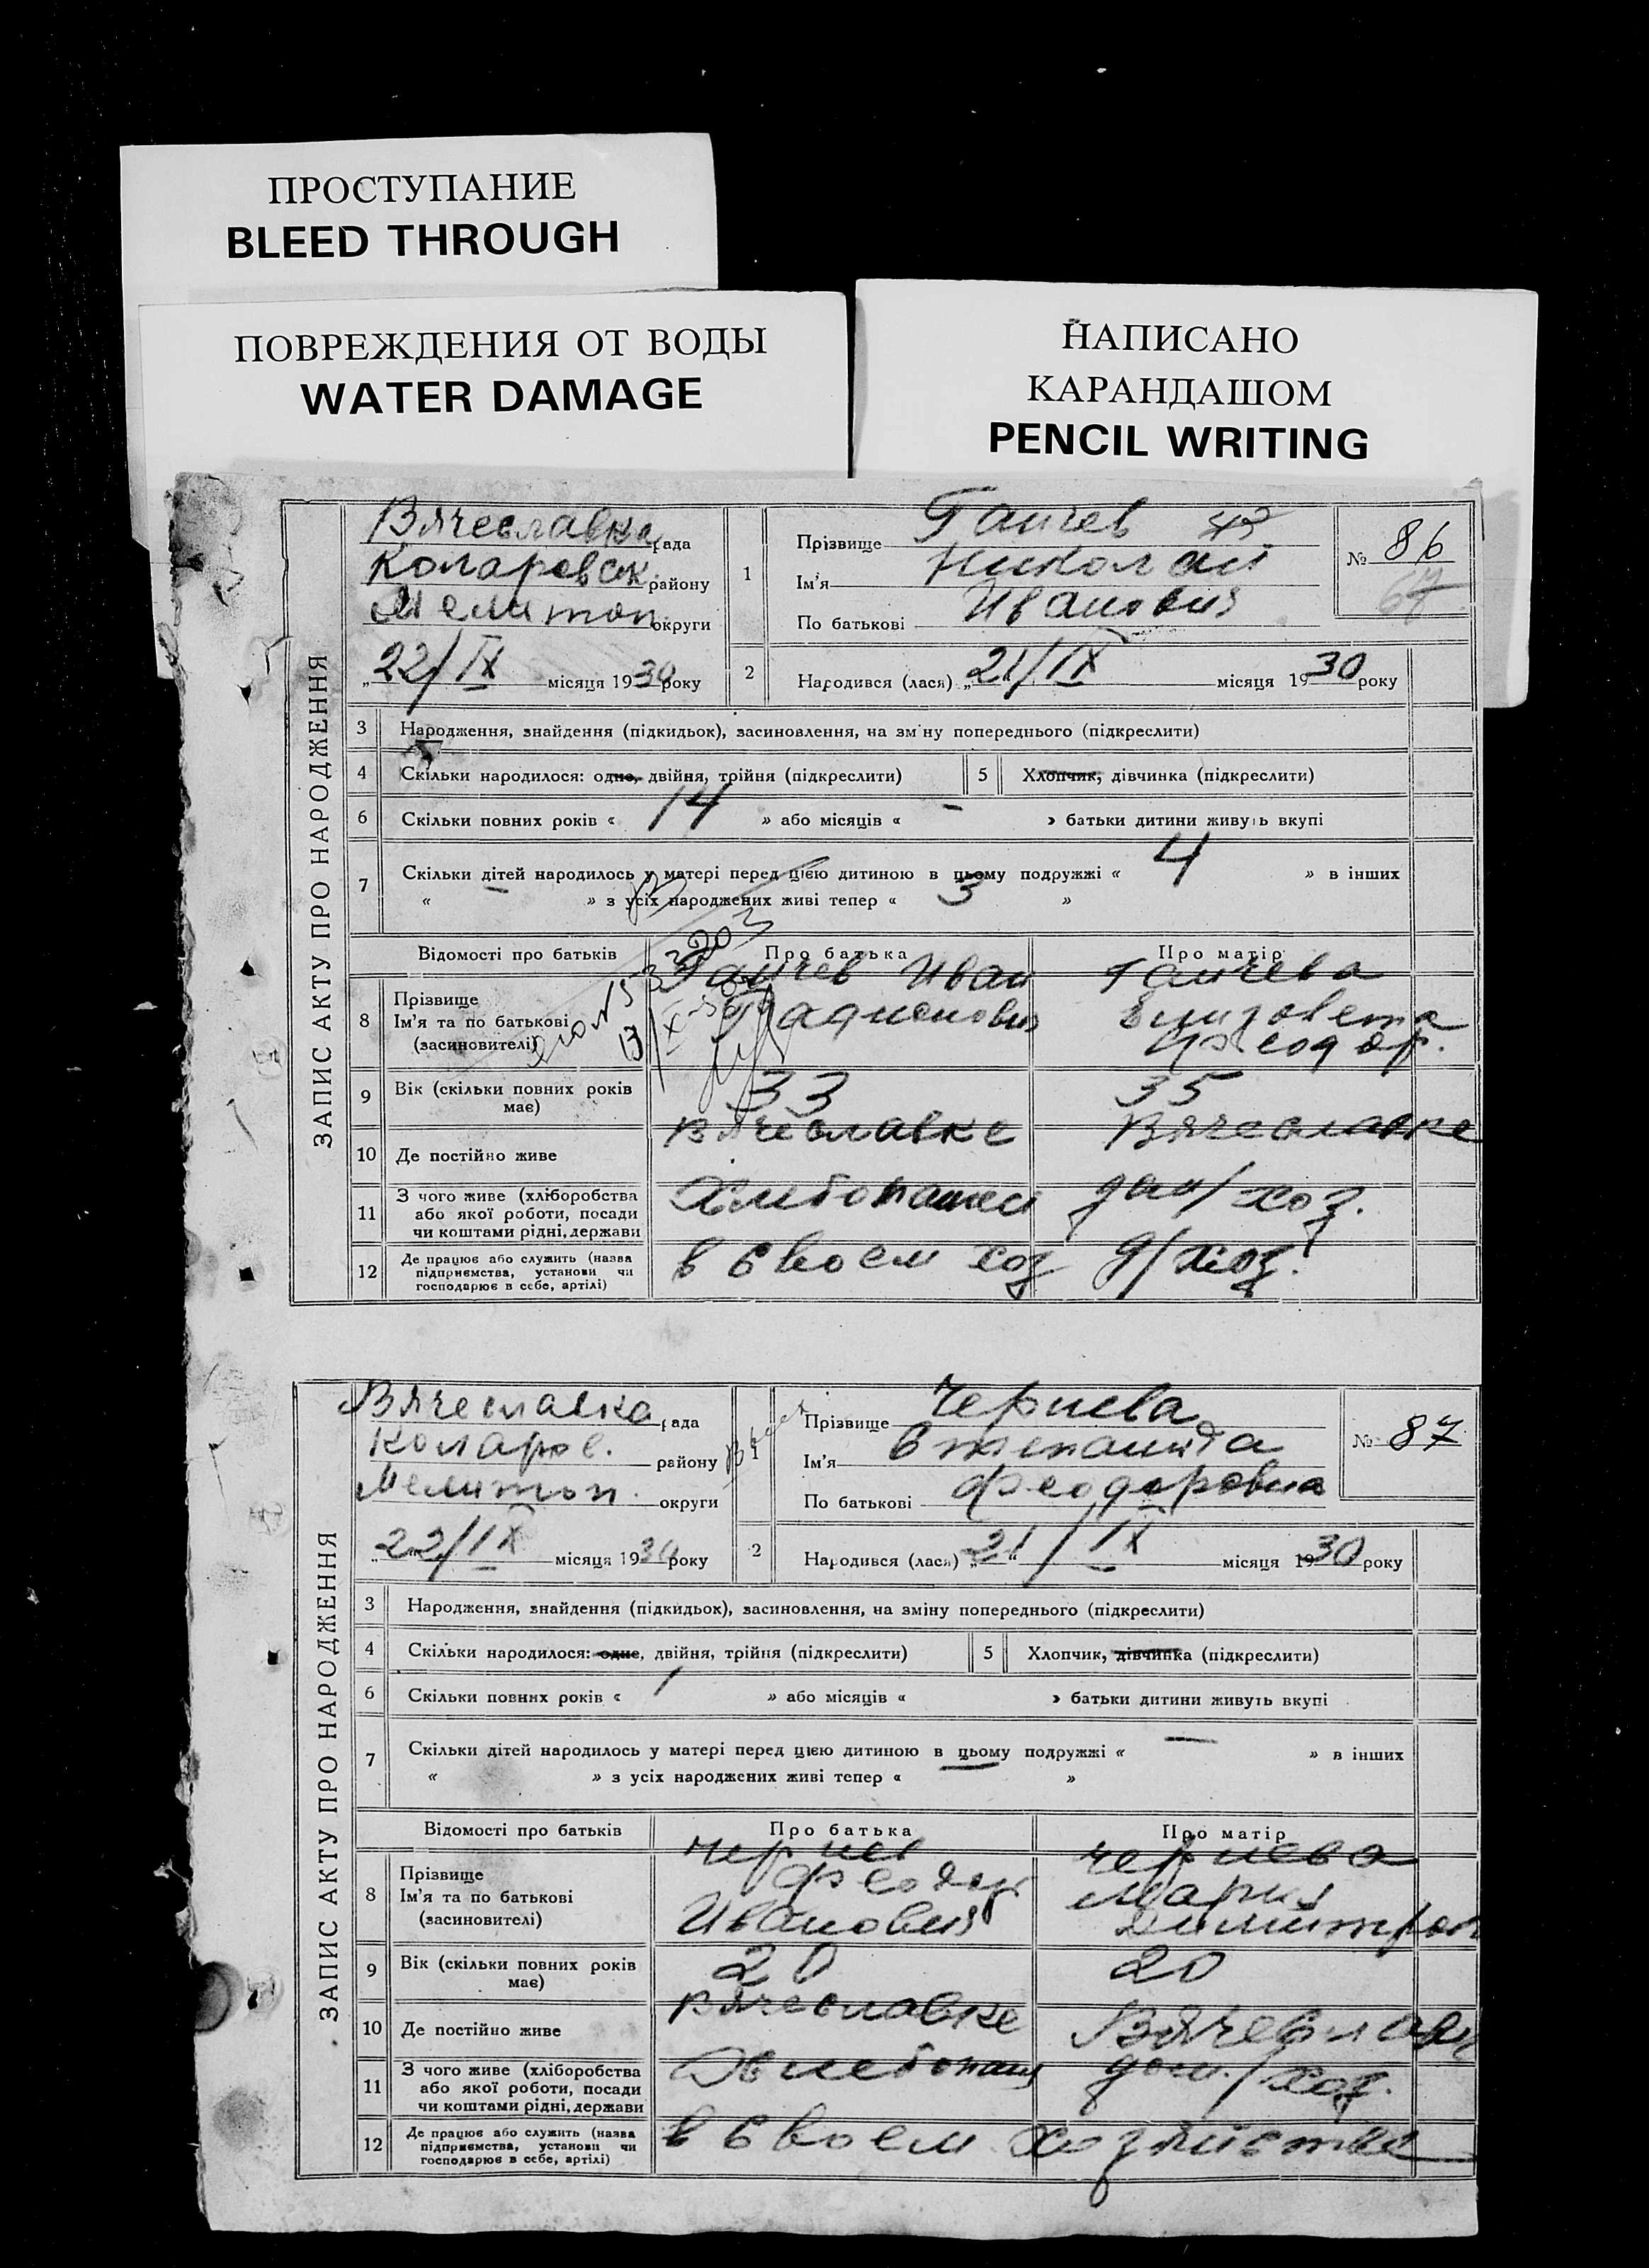 ПРОСТУПАНИЕ
BLEED THROUGH
ПОВРЕЖДЕНИЯ ОТ ВОДЫ
WATER DAMAGE
НАПИСАНО
КАРАНДАШОМ
PENCIL WRITING
ЗАПИС АКТУ ПРО НАРОДЖЕННЯ
Вячеславка рада
Коларовск. району
Мелитоп. округи
„22/IX місяця 1930 року
1
Прізвище Ганчев
Ім'я Николай
По батькові Иванович
№ 86
67
2 Народився (лася) „21/IX місяця 1930 року
3 Народження, знайдення (підкидьок), засиновлення, на зміну попереднього (підкреслити)
4 Скільки народилося: одне, двійня, трійня (підкреслити) 5 Хлопчик, дівчинка (підкреслити)
6 Скільки повних років « 14 » або місяців « – » батьки дитини живуть вкупі
7 Скільки дітей народилось у матері перед цією дитиною в цьому подружжі « 4 » в інших
« – » з усіх народжених живі тепер « 3 »
Відомості про батьків Про батька Про матір
8 Прізвище
Ім'я та по батькові
(засиновителі)
Ганчев Иван
Ганчева
Елизовета
Феодор.
9 Вік (скільки повних років має) 33 35
10 Де постійно живе Вячеславке Вячеславке
11 З чого живе (хліборобства
або якої роботи, посади
чи коштами рідні, держави
дом/хоз.
12 Де працює або служить (назва
підприємства, установи чи
господарює в себе, артілі)
в своем хоз д/хоз.
ЗАПИС АКТУ ПРО НАРОДЖЕННЯ
Вячеславка рада
Коларов. району
Мелитоп. округи
„22/IX місяця 1930 року
1
Прізвище Чернева
Ім'я
По батькові Феодоровна
№ 87
2 Народився (лася) „21/IX місяця 1930 року
3 Народження, знайдення (підкидьок), засиновлення, на зміну попереднього (підкреслити)
4 Скільки народилося: одне, двійня, трійня (підкреслити) 5 Хлопчик, дівчинка (підкреслити)
6 Скільки повних років « 1 » або місяців « » батьки дитини живуть вкупі
7 Скільки дітей народилось у матері перед цією дитиною в цьому подружжі « – » в інших
« » з усіх народжених живі тепер « – »
Відомості про батьків Про батька Про матір
8 Прізвище
Ім'я та по батькові
(засиновителі)
Чернев
Феодор
Иванович
Чернева
Мария
Димитров
9 Вік (скільки повних років має) 20 20
10 Де постійно живе Вячеславке Вячеславк
11 З чого живе (хліборобства
або якої роботи, посади
чи коштами рідні, держави
дом./хоз.
12 Де працює або служить (назва
підприємства, установи чи
господарює в себе, артілі)
в своем хозяйстве